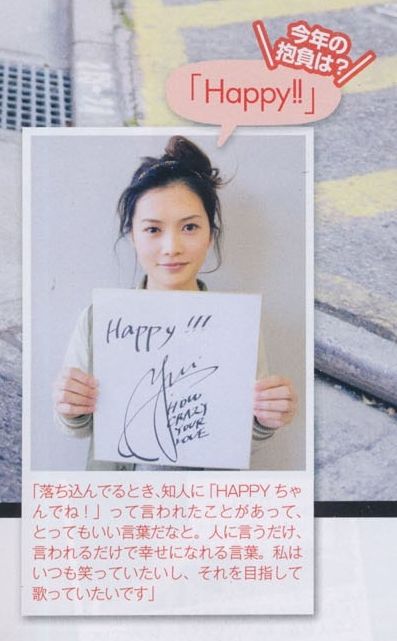 今年の
抱負は?
「Happy!!」
Happy!!!
Yui
HOW
CRAZY
YOUR
LOVE
「落ち込んでるとき、知人に「HAPPYちゃ
んでね!」って言われたことがあって、
とってもいい言葉だなと。人に言うだけ、
言われるだけで幸せになれる言葉。私は
いつも笑っていたいし、それを目指して
歌っていたいです」